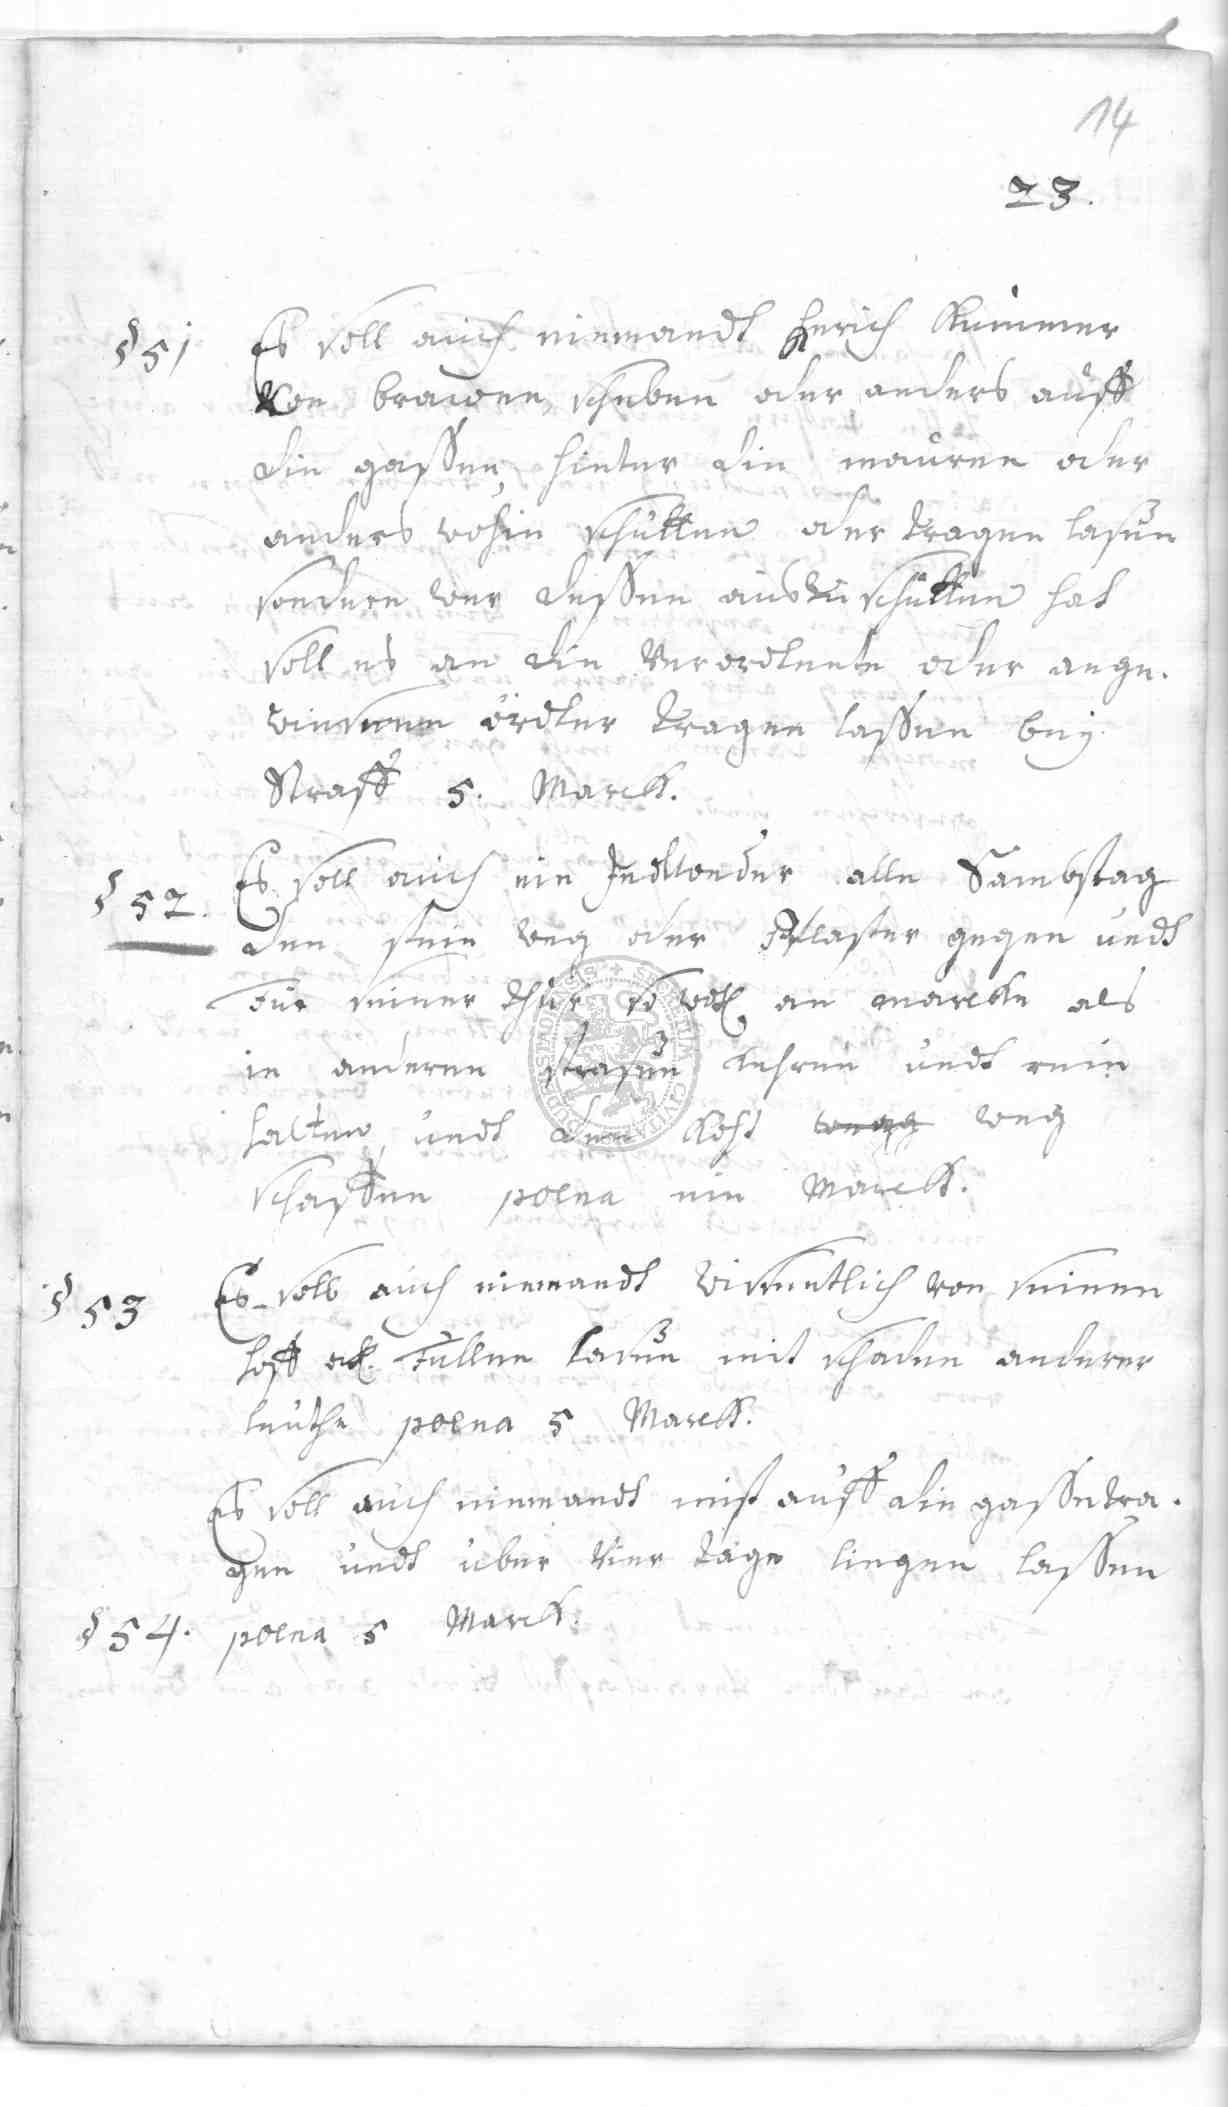 14
23.
§ 51 Es soll auch niemandt kerich kummer
von brawen, schuben oder anders auff
die gassen, hinter die mauren oder
anders wohin schütten oder tragen lasen
sondern wer dessen auszuschütten hat
soll es an die Verordtente oder ange.
wiesenen ördter tragen lassen bey
Straff 5. Marckh.
§ 52. Es soll auch ein Jedtweder alle Sambstag
den stein weg oder Pflaster gegen undt
Für seiner thür so woh an marckte als
in anderen strasen kehren undt rein
halten undt den Koht wegg weg
schaffen poena ein Marckh.
§ 53 Es soll auch niemandt wisentlich von seinen
hoff etc. Füllen lasen mit schaden anderer
leuthe poena 5 Marckh.
Es soll auch niemandt mist auff die gasse tra.
gen undt über vier tage liegen lassen
§ 54. poena 5 Marckh.